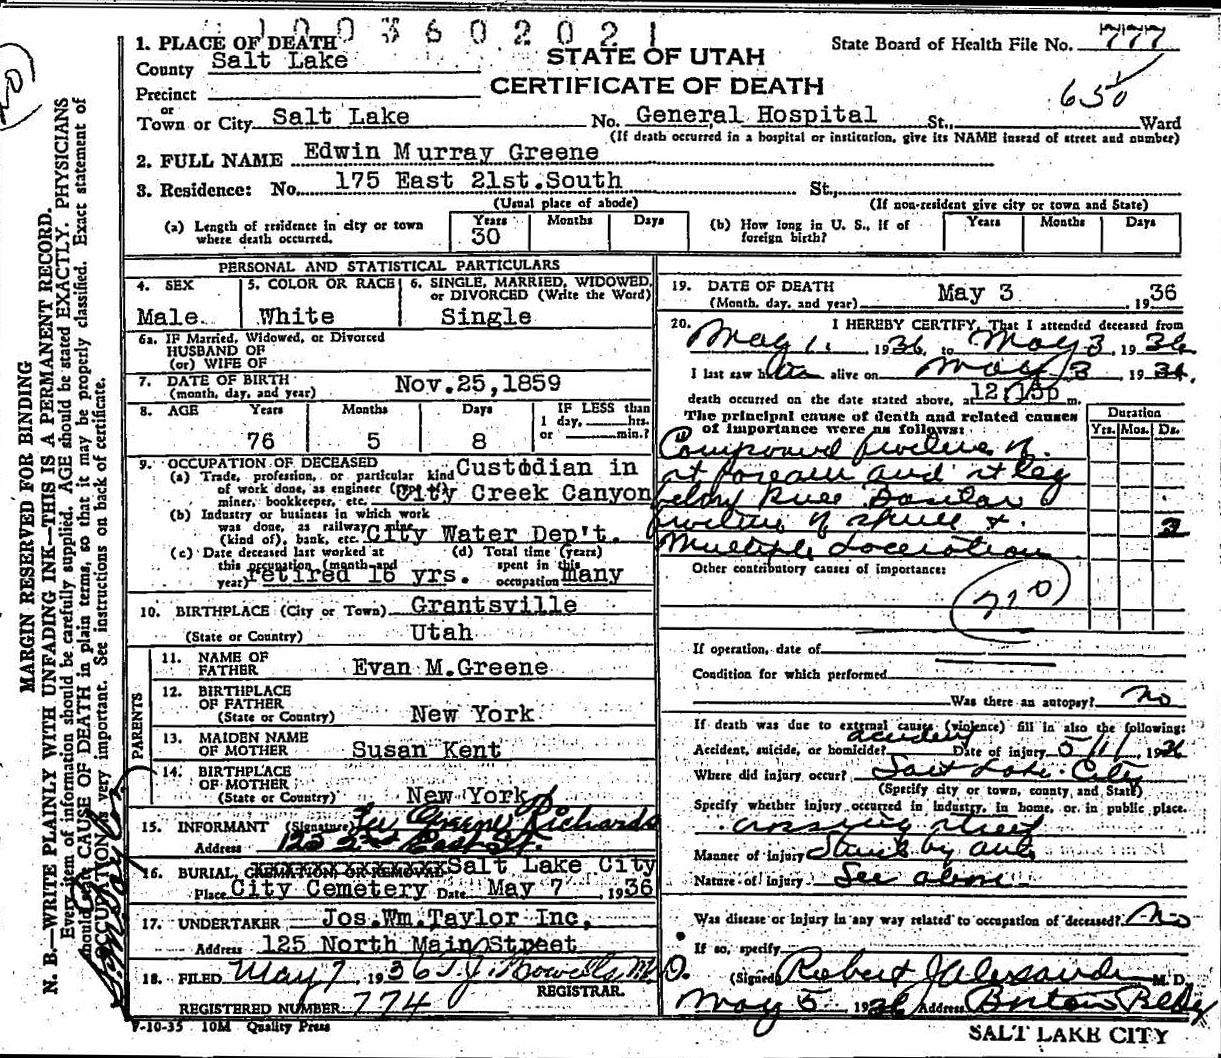 1003602021
1. PLACE OF DEATH
County Salt Lake
STATE OF UTAH
CERTIFICATE OF DEATH
State Board of Health File No. 777
650
Precinct
or
Town or City Salt Lake No. General Hospital St., Ward
(If death occurred in a hospital or institution, give its NAME instead of street and number)
2. FULL NAME Edwin Murray Greene
3. Residence: No. 175 East 21st.South St.,
(Usual place of abode) (If non-resident give city or town and State)
(a) Length of residence in city or town where death occurred. Years 30 Months Days
(b) How long in U. S., if of foreign birth? Years Months Days
PERSONAL AND STATISTICAL PARTICULARS
4. SEX Male
5. COLOR OR RACE White
6. SINGLE, MARRIED, WIDOWED, or DIVORCED (Write the Word) Single
6a. IF Married, Widowed, or Divorced
HUSBAND OF
(or) WIFE OF
7. DATE OF BIRTH (month, day, and year) Nov.25,1859
8. AGE Years 76 Months 5 Days 8
IF LESS than
1 day, hrs.
or min.?
9. OCCUPATION OF DECEASED
(a) Trade, profession, or particular kind of work done, as engineer miner, bookkeeper, etc. Custodian in City Creek Canyon
(b) Industry or business in which work was done, as railway (kind of), bank, etc. City Water Dep't.
(c) Date deceased last worked at this occupation (month and year) retired 16 yrs.
(d) Total time (years) spent in this occupation many
10. BIRTHPLACE (City or Town) Grantsville
(State or Country) Utah
PARENTS
11. NAME OF FATHER Evan M.Greene
12. BIRTHPLACE OF FATHER (State or Country) New York
13. MAIDEN NAME OF MOTHER Susan Kent
14. BIRTHPLACE OF MOTHER (State or Country) New York
15. INFORMANT (Signature) Greene Richards
Address 125 2nd East St.
16. BURIAL, CREMATION OR REMOVAL Salt Lake City
Place City Cemetery Date May 7, 1936
17. UNDERTAKER Jos.Wm.Taylor Inc,
Address 125 North Main Street
18. FILED May 7, 1936 T. J. Howells, M.D.
REGISTRAR.
REGISTERED NUMBER 774
7-10-35 10M Quality Press
19. DATE OF DEATH (Month, day, and year) May 3 1936
20. I HEREBY CERTIFY, That I attended deceased from
May 1, 1936, to May 3, 1936
I last saw h alive on May 3 1936.
death occurred on the date stated above, at 12:15p m.
The principal cause of death and related causes of importance were as follows:
Duration
Yrs. Mos. Ds.
Compound fracture of
rt forearm and rt leg
below knee Basilar
fracture of skull & 3
Multiple Laceration
Other contributory causes of importance:
210
If operation, date of
Condition for which performed
Was there an autopsy? no
If death was due to external causes (violence) fill in also the following:
Accident, suicide, or homicide? accident Date of injury 5/1/ 1936
Where did injury occur? Salt Lake City
(Specify city or town, county and State)
Specify whether injury occurred in industry, in home, or in public place.
crossing street
Manner of injury Struck by auto
Nature of injury See above
Was disease or injury in any way related to occupation of deceased? No
If so, specify
(Signed) Robert J Alessandri M. D.
May 5 1936 Address Boston Bldg
SALT LAKE CITY
MARGIN RESERVED FOR BINDING
N. B.—WRITE PLAINLY WITH UNFADING INK—THIS IS A PERMANENT RECORD.
Every item of information should be carefully supplied. AGE should be stated EXACTLY. PHYSICIANS
should state CAUSE OF DEATH in plain terms, so that it may be properly classified. Exact statement of
OCCUPATION is very important. See instructions on back of certificate.